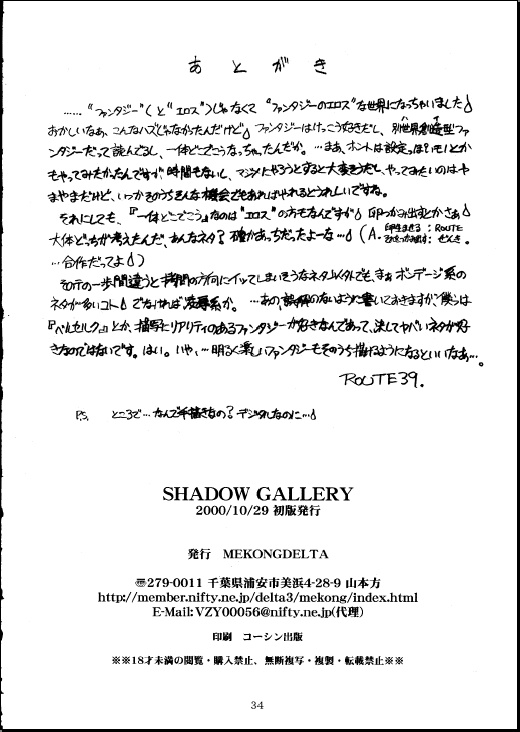 あとがき
……“ファンタジー”(と“エロス”)じゃなくて“ファンタジーのエロス”な世界になっちゃいました
おかしいなぁ、こんなハズじゃなかったんだけど ファンタジーはけっこう好きだし、別世界創造型ファ
ンタジーだって読んでるし、一体どこでこうなっちゃったんだか。…まあ、ホントは設定っぽいモノとか
もやってみたかったんですが時間もないし、マジメにやろうとすると大変そうだし、やってみたいのはや
まやまだけど、いつかそのうちそんな機会でもあればやれるとうれしいですね。
それにしても、『一体どこでこう』なのは“エロス”の方もなんですが 卵つかみ出すとかさぁ
大体どっちが考えたんだ、あんなネタ？確かあっちだったよーな…(A.卵生ませる：ROUTE
…合作だってよ)
その一歩間違うと拷問の方向にイッてしまいそうなネタ以外でも、まぁボンデージ系の
ネタが多いコト でなければ凌辱系か。…あの、誤解のないように書いておきますが、僕らは
『ベルセルク』とか、描写にリアリティのあるファンタジーが好きなんであって、決してヤバいネタが好
きなのではないです。はい。いや、…明るく楽しいファンタジーもそのうち描けるようになるといいなぁ…。
ROUTE39.
P.S. ところで…なんで手描きなの？デジタルなのに…
SHADOW GALLERY
2000/10/29 初版発行
発行 MEKONGDELTA
〠279-0011 千葉県浦安市美浜4-28-9 山本方
http://member.nifty.ne.jp/delta3/mekong/index.html
E-Mail:VZY00056@nifty.ne.jp(代理)
印刷 コーシン出版
※※18才未満の閲覧・購入禁止、無断複写・複製・転載禁止※※
34